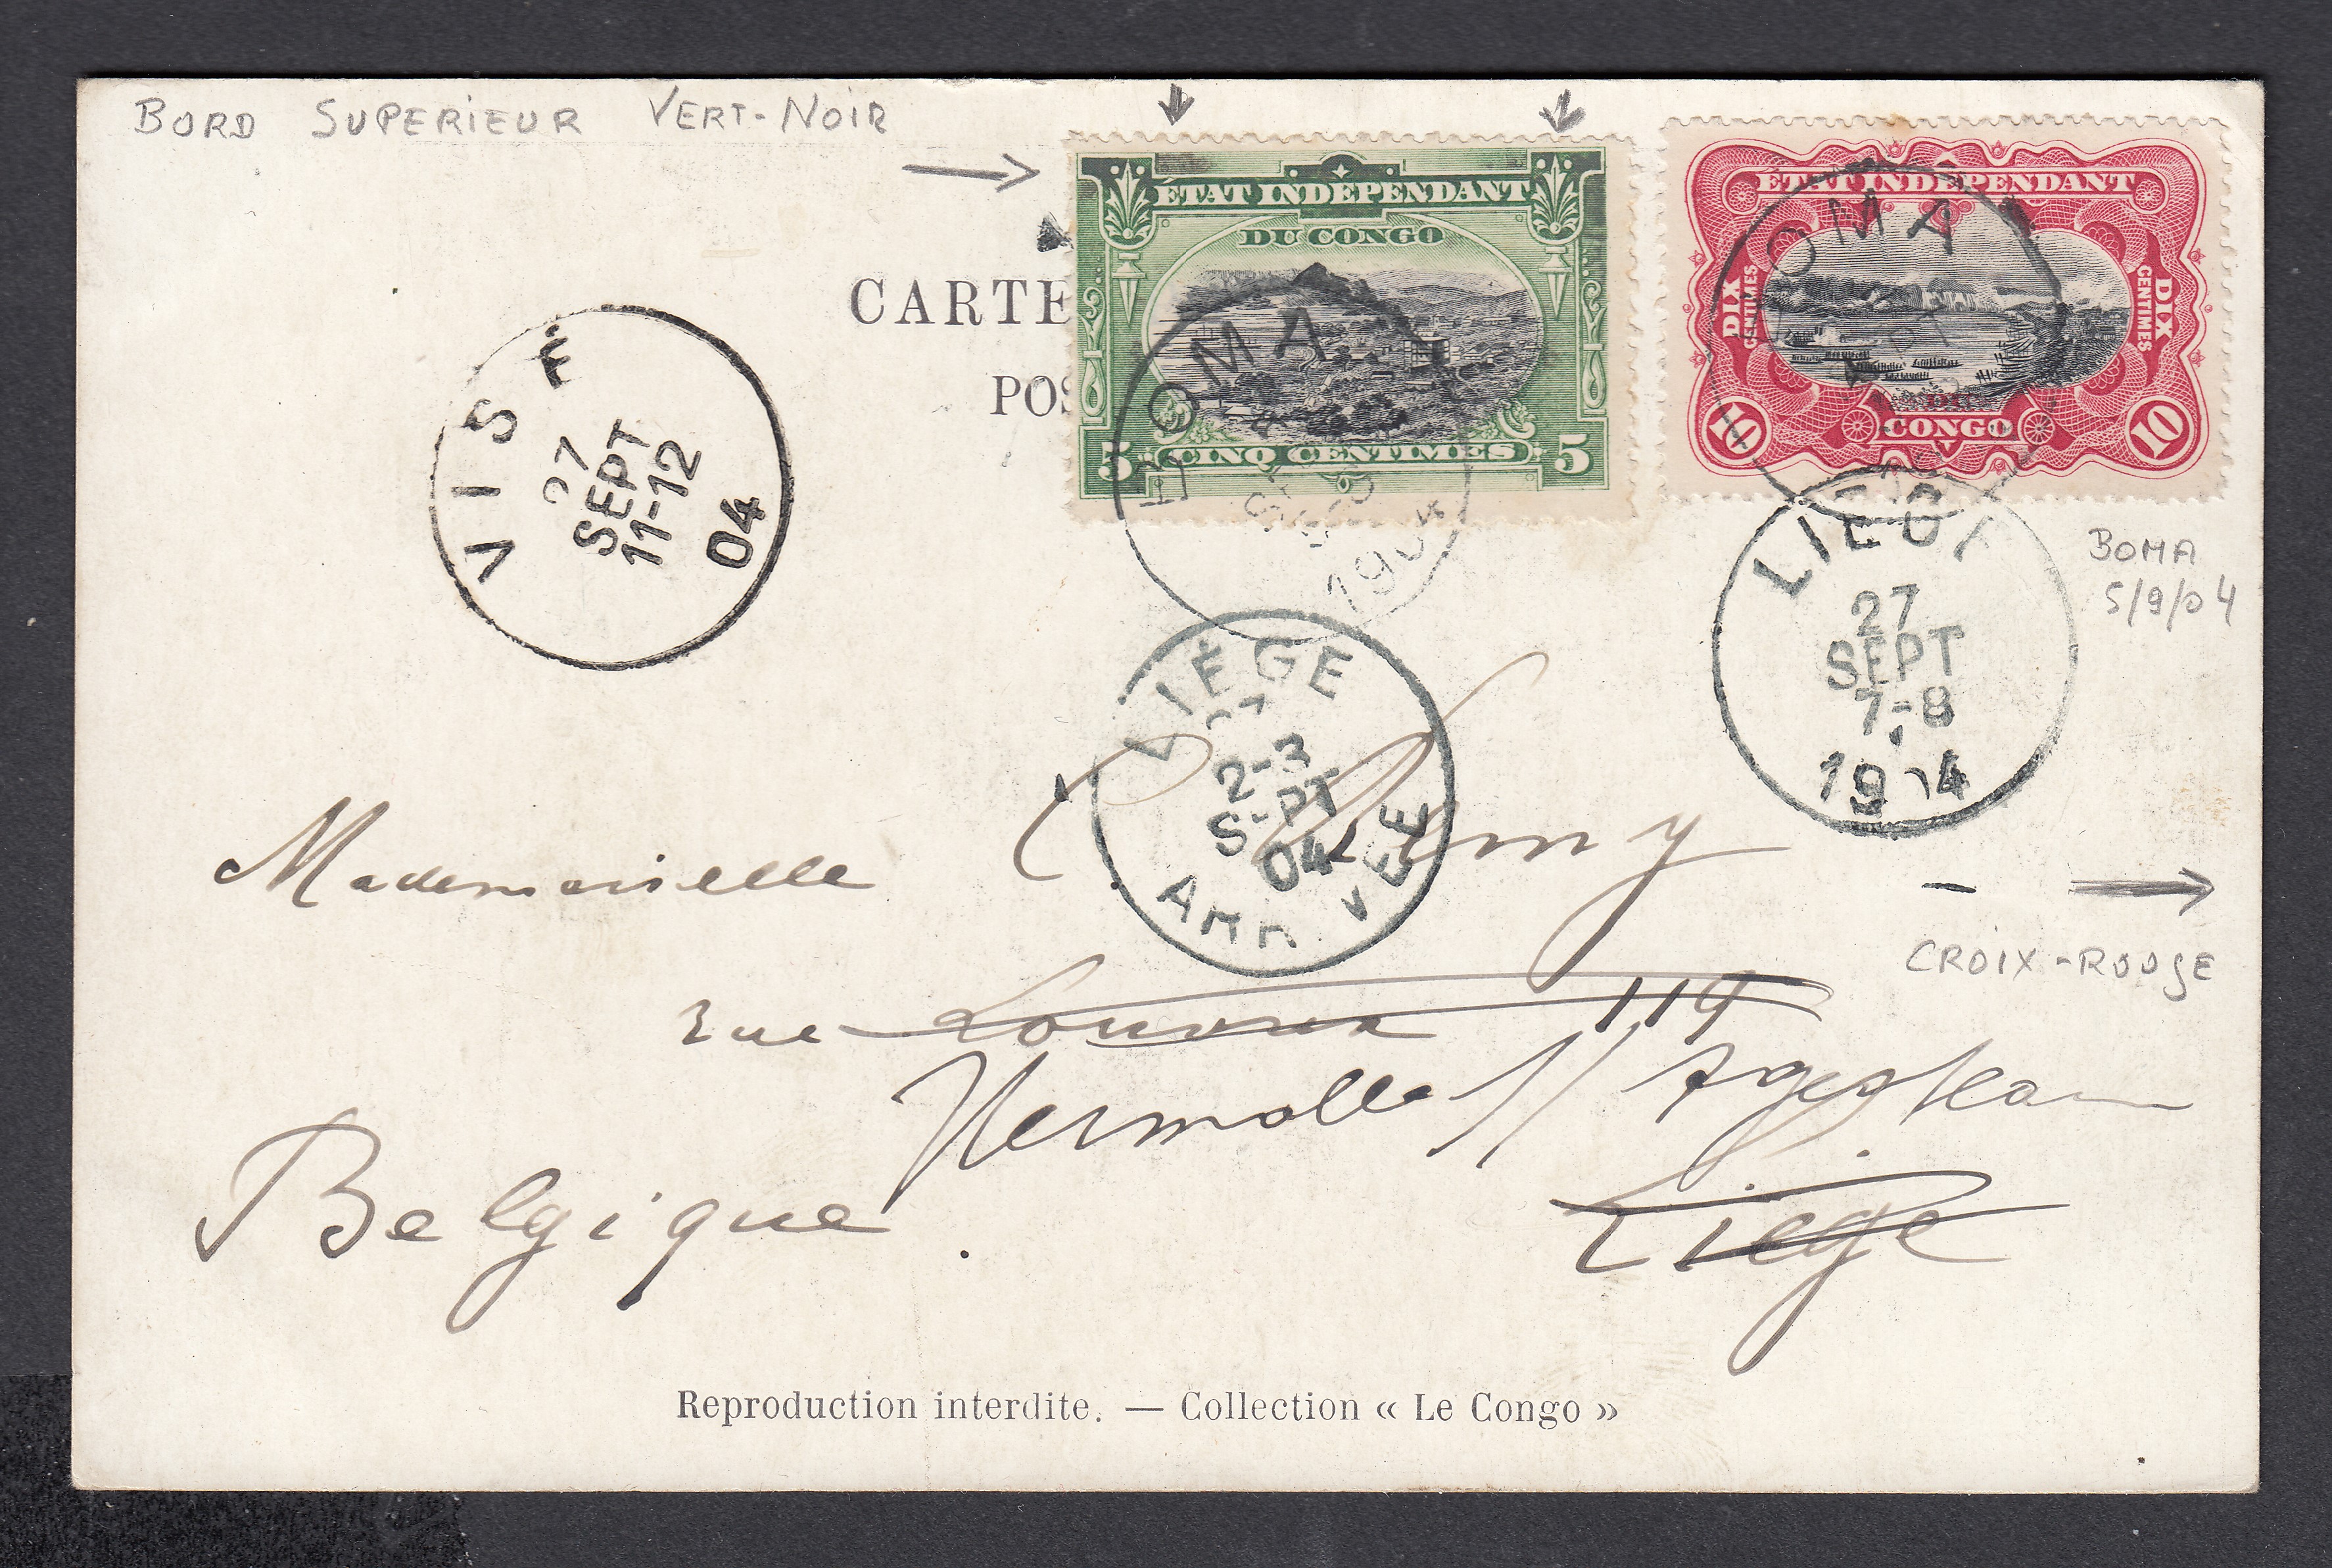 BORD SUPERIEUR VERT-NOIR
ÉTAT INDÉPENDANT
DU CONGO
5 CINQ CENTIMES 5
ÉTAT INDÉPENDANT
DIX CENTIMES
DIX CENTIMES
10 CONGO 10
CARTE
POS
BOMA
1904
BOMA
VISÉ
27
SEPT
11-12
04
LIÉGE
27
SEPT
7-8
1904
BOMA
5/9/04
LIÉGE
2-3
SEPT
04
ARRIVÉE
Mademoiselle
CROIX-ROUGE
rue 119
Hermalle s/ Argenteau
Belgique.
Liége
Reproduction interdite. — Collection « Le Congo »